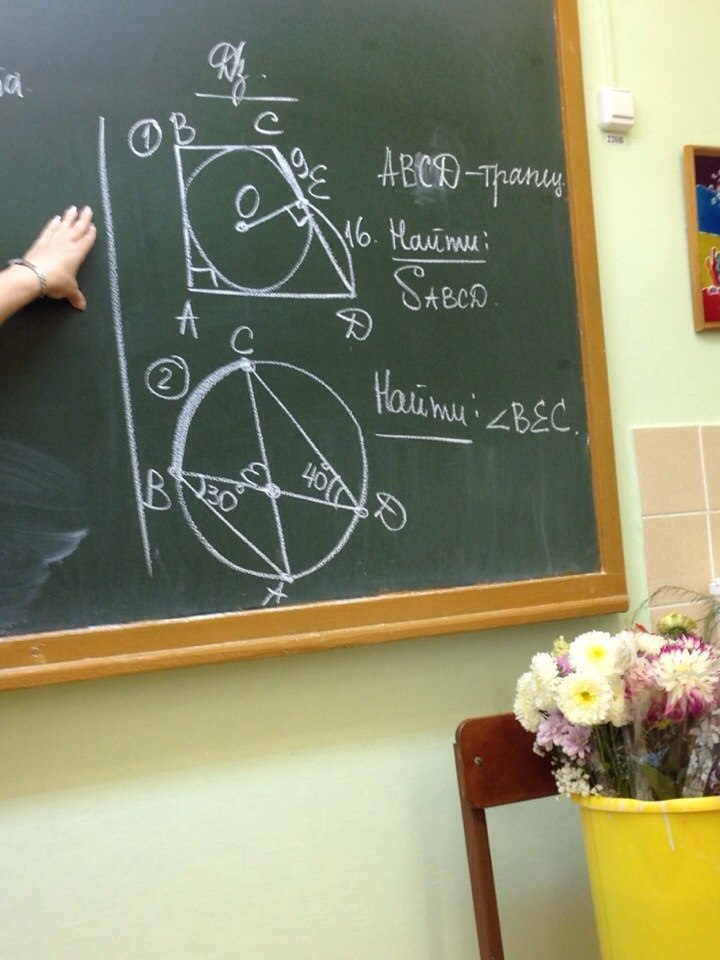 Дз.
①
B C
9
E
O
16.
A
Д
ABCD-трапец
Найти:
S ABCD.
②
C
B
30°
40°
Д
A
Найти: ∠BEC.
220В